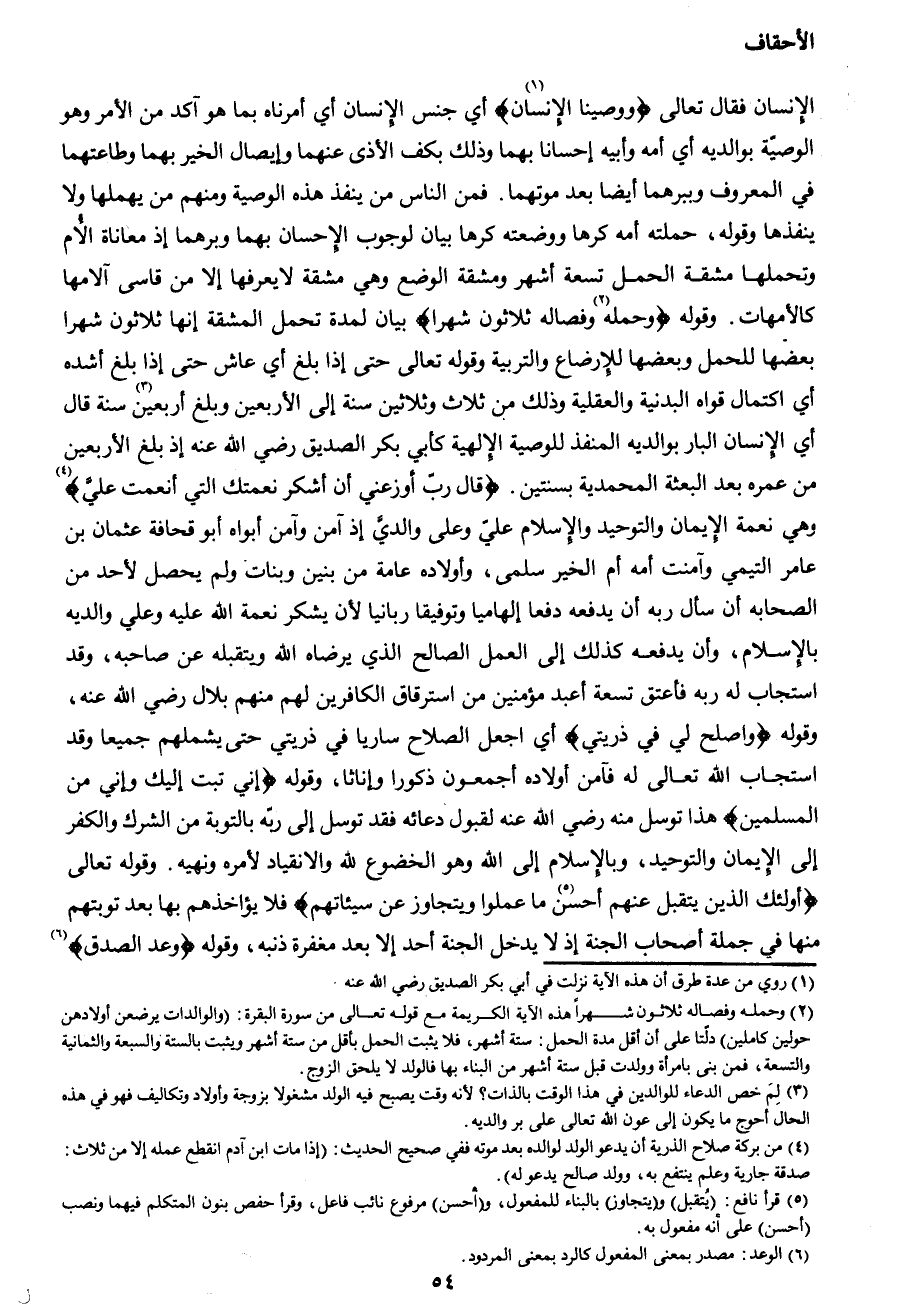 الأحقاف
الإنسان فقال تعالى ﴿ووصينا الإنسان(١)﴾ أي جنس الإنسان أي أمرناه بما هو آكد من الأمر وهو
الوصيّة بوالديه أي أمه وأبيه إحسانا بهما وذلك بكف الأذى عنهما وإيصال الخير بهما وطاعتهما
في المعروف وببرهما أيضا بعد موتهما. فمن الناس من ينفذ هذه الوصية ومنهم من يهملها ولا
ينفذها وقوله، حملته أمه كرها ووضعته كرها بيان لوجوب الإحسان بهما وبرهما إذ معاناة الأُم
وتحملها مشقة الحمل تسعة أشهر ومشقة الوضع وهي مشقة لايعرفها إلا من قاسى آلامها
كالأمهات. وقوله ﴿وحمله(٢) وفصاله ثلاثون شهرا﴾ بيان لمدة تحمل المشقة إنها ثلاثون شهرا
بعضها للحمل وبعضها للإرضاع والتربية وقوله تعالى حتى إذا بلغ أي عاش حتى إذا بلغ أشده
أي اكتمال قواه البدنية والعقلية وذلك من ثلاث وثلاثين سنة إلى الأربعين وبلغ أربعين(٣) سنة قال
أي الإنسان البار بوالديه المنفذ للوصية الإلهية كأبي بكر الصديق رضي الله عنه إذ بلغ الأربعين
من عمره بعد البعثة المحمدية بسنتين. ﴿قال ربّ أوزعني أن أشكر نعمتك التي أنعمت عليَّ﴾(٤)
وهي نعمة الإيمان والتوحيد والإسلام عليّ وعلى والديَّ إذ آمن وآمن أبواه أبو قحافة عثمان بن
عامر التيمي وآمنت أمه أم الخير سلمى، وأولاده عامة من بنين وبنات ولم يحصل لأحد من
الصحابه أن سأل ربه أن يدفعه دفعا إلهاميا وتوفيقا ربانيا لأن يشكر نعمة الله عليه وعلي والديه
بالإسلام، وأن يدفعه كذلك إلى العمل الصالح الذي يرضاه الله ويتقبله عن صاحبه، وقد
استجاب له ربه فأعتق تسعة أعبد مؤمنين من استرقاق الكافرين لهم منهم بلال رضي الله عنه،
وقوله ﴿واصلح لي في ذريتي﴾ أي اجعل الصلاح ساريا في ذريتي حتى يشملهم جميعا وقد
استجاب الله تعالى له فآمن أولاده أجمعون ذكورا وإناثا، وقوله ﴿إني تبت إليك وإني من
المسلمين﴾ هذا توسل منه رضي الله عنه لقبول دعائه فقد توسل إلى ربّه بالتوبة من الشرك والكفر
إلى الإيمان والتوحيد، وبالإسلام إلى الله وهو الخضوع لله والانقياد لأمره ونهيه. وقوله تعالى
﴿أولئك الذين يتقبل عنهم أحسن(٥) ما عملوا ويتجاوز عن سيئاتهم﴾ فلا يؤاخذهم بها بعد توبتهم
منها في جملة أصحاب الجنة إذ لا يدخل الجنة أحد إلا بعد مغفرة ذنبه، وقوله ﴿وعد الصدق﴾(٦)
(١) روي من عدة طرق أن هذه الآية نزلت في أبي بكر الصديق رضي الله عنه
(٢) وحمله وفصاله ثلاثون شهراً هذه الآية الكريمة مع قوله تعالى من سورة البقرة: (والوالدات يرضعن أولادهن
حولين كاملين) دلّتا على أن أقل مدة الحمل: ستة أشهر، فلا يثبت الحمل بأقل من ستة أشهر ويثبت بالستة والسبعة والثمانية
والتسعة، فمن بنى بامرأة وولدت قبل ستة أشهر من البناء بها فالولد لا يلحق الزوج.
(٣) لِمَ خص الدعاء للوالدين في هذا الوقت بالذات؟ لأنه وقت يصبح فيه الولد مشغولا بزوجة وأولاد وتكاليف فهو في هذه
الحال أحوج ما يكون إلى عون الله تعالى على بر والديه.
(٤) من بركة صلاح الذرية أن يدعو الولد لوالده بعد موته ففي صحيح الحديث: (إذا مات ابن آدم انقطع عمله إلا من ثلاث:
صدقة جارية وعلم ينتفع به، وولد صالح يدعو له).
(٥) قرأ نافع: (يُتقبل) و(يتجاوز) بالبناء للمفعول، و(أحسن) مرفوع نائب فاعل، وقرأ حفص بنون المتكلم فيهما ونصب
(أحسن) على أنه مفعول به.
(٦) الوعد: مصدر بمعنى المفعول كالرد بمعنى المردود.
٥٤